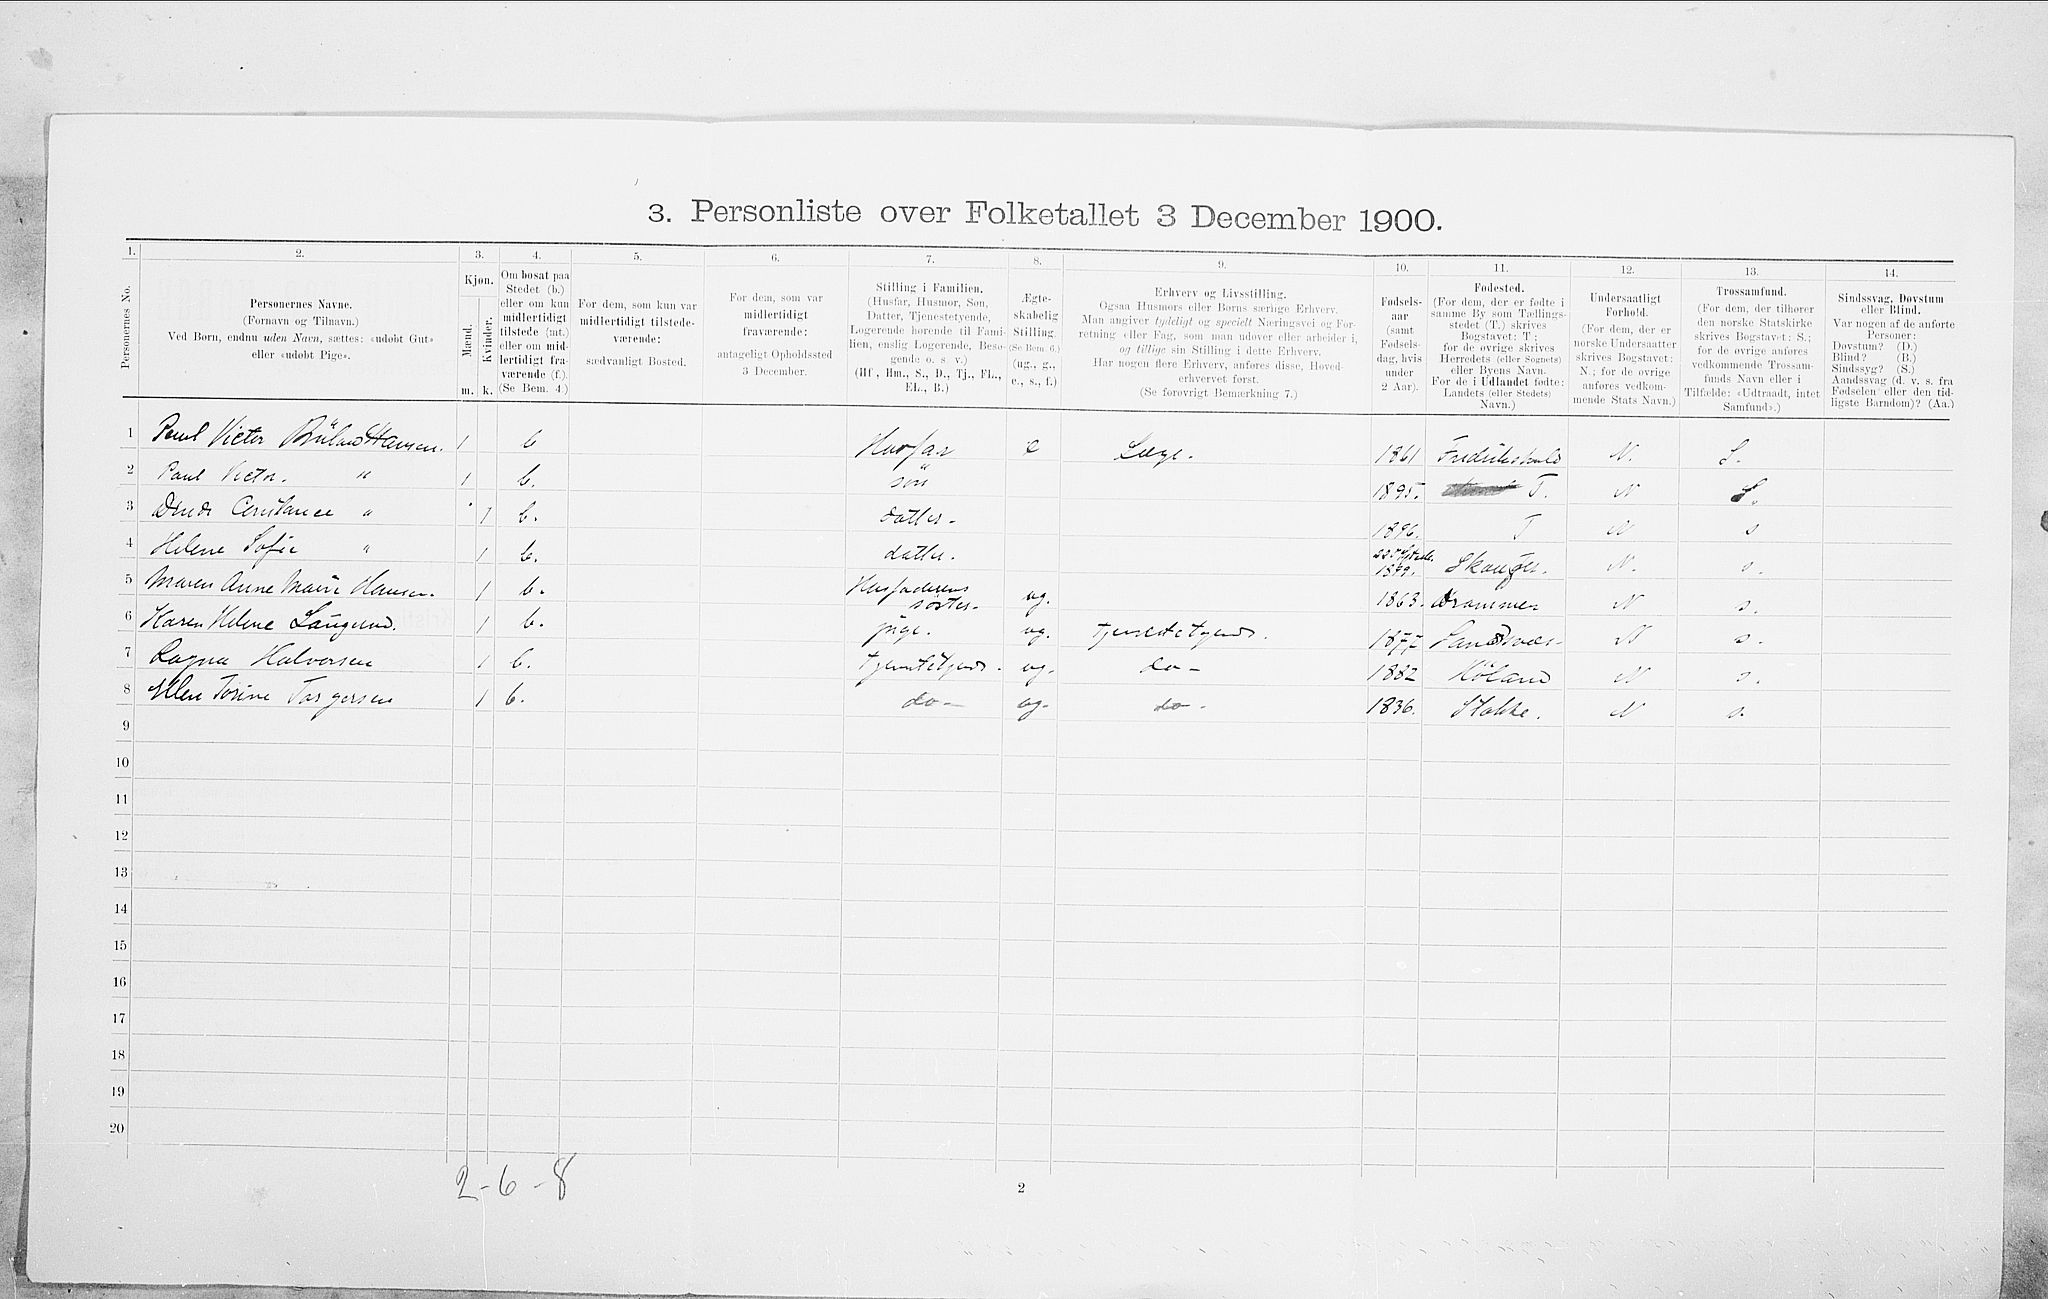 3. Personliste over Folketallet 3 December 1900.
1. 2. 3. 4. 5. 6. 7. 8. 9. 10. 11. 12. 13. 14.
Personernes No.
Personernes Navne.
(Fornavn og Tilnavn.)
Ved Børn, endnu uden Navn, sættes: «udøbt Gut»
eller «udøbt Pige».
Kjøn.
Mænd.
Kvinder.
m. k.
Om bosat paa
Stedet (b.)
eller om kun
midlertidigt
tilstede (mt.)
eller om mid-
lertidigt fra-
værende (f.).
(Se Bem. 4.)
For dem, som kun var
midlertidigt tilstede-
værende:
sædvanligt Bosted.
For dem, som var
midlertidigt
fraværende:
antageligt Opholdssted
3 December.
Stilling i Familien.
(Husfar, Husmor, Søn,
Datter, Tjenestetyende,
Logerende hørende til Fami-
lien, enslig Logerende, Besø-
gende o. s. v.)
(Hf., Hm., S., D., Tj., FL.,
EL., B.)
Ægte-
skabelig
Stilling.
(Se Bem. 6.)
(ug., g.,
e., s., f.)
Erhverv og Livsstilling.
Ogsaa Husmors eller Børns særlige Erhverv.
Man angiver tydeligt og specielt Næringsvei og For-
retning eller Fag, som man udøver eller arbeider i,
og tillige sin Stilling i dette Erhverv.
Har nogen flere Erhverv, anføres disse, Hoved-
erhvervet først.
(Se forøvrigt Bemærkning 7.)
Fødsels-
aar
(samt
Fødsels-
dag, hvis
under
2 Aar).
Fødested.
(For dem, der er fødte i
samme By som Tællings-
stedet (T.) skrives
Bogstavet: T;
for de øvrige skrives
Herredets (eller Sognets)
eller Byens Navn.
For de i Udlandet fødte:
Landets (eller Stedets)
Navn.)
Undersaatligt
Forhold.
(For dem, der er
norske Undersaatter
skrives Bogstavet:
N.; for de øvrige
anføres vedkom-
mende Stats Navn.)
Trossamfund.
(For dem, der tilhører
den norske Statskirke
skrives Bogstavet: S.;
for de øvrige anføres
vedkommende Trossam-
funds Navn eller i
Tilfælde: «Udtraadt, intet
Samfund».)
Sindssvag, Døvstum
eller Blind.
Var nogen af de anførte
Personer:
Døvstum? (D.)
Blind? (B.)
Sindssyg? (S.)
Aandssvag (d. v. s. fra
Fødselen eller den tid-
ligste Barndom)? (Aa.)
1 Paul Victor Bülow Hansen. 1 b Husfar e Læge. 1861 Fredrikshald N. S.
2 Paul Victor. " 1 b. søn 1895. T. N S.
3 Constance " 1 b. datter. 1896. T N s
4 Helene Sofie " 1 b. datter. 1899. Skouger. N. s.
5 Maren Anne Marie Hansen. 1 b. Husfaderens søster. ug. 1863. Drammen N s.
6 Karen Helene Laugerud. 1 b. pige. ug. tjenestetyende. 1877 Sandsvær N s.
7 Ragna Halvorsen 1 b. tjenestetyende. ug. do- 1882 Høland N s.
8 Ellen Torine Torgersen 1 b. do- ug. do- 1836. Stokke. N s.
9
10
11
12
13
14
15
16
17
18
19
20
2-6-8
2